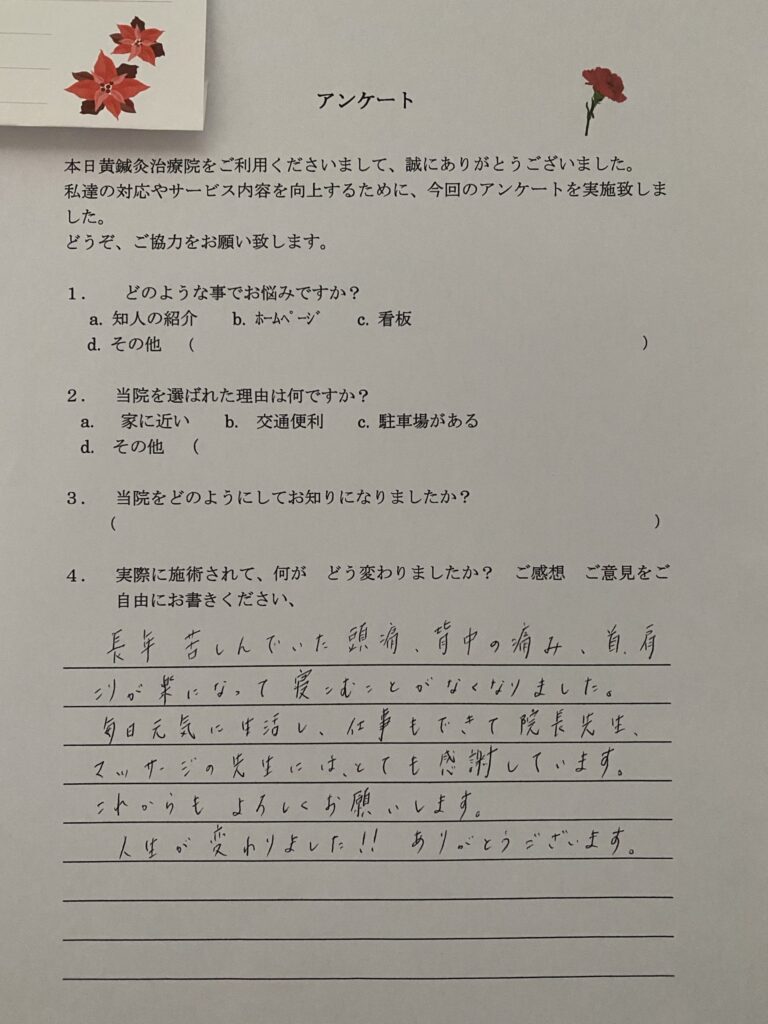 アンケート
本日黄鍼灸治療院をご利用くださいまして、誠にありがとうございました。
私達の対応やサービス内容を向上するために、今回のアンケートを実施致しま
した。
どうぞ、ご協力をお願い致します。
１．　どのような事でお悩みですか？
a. 知人の紹介　b. ﾎｰﾑﾍﾟｰｼﾞ　c. 看板
d. その他　(　)
２．　当院を選ばれた理由は何ですか？
a.　家に近い　b.　交通便利　c. 駐車場がある
d.　その他　(
３．　当院をどのようにしてお知りになりましたか？
(　)
４．　実際に施術されて、何が　どう変わりましたか？　ご感想　ご意見をご
自由にお書きください、
長年 苦しんでいた 頭痛、背中の痛み、首、肩
こりが 楽になって 寝こむことがなくなりました。
毎日元気に生活し、仕事もできて 院長先生、
マッサージの先生には、とても感謝しています。
これからも よろしくお願いします。
人生が 変わりました!! ありがとうございます。